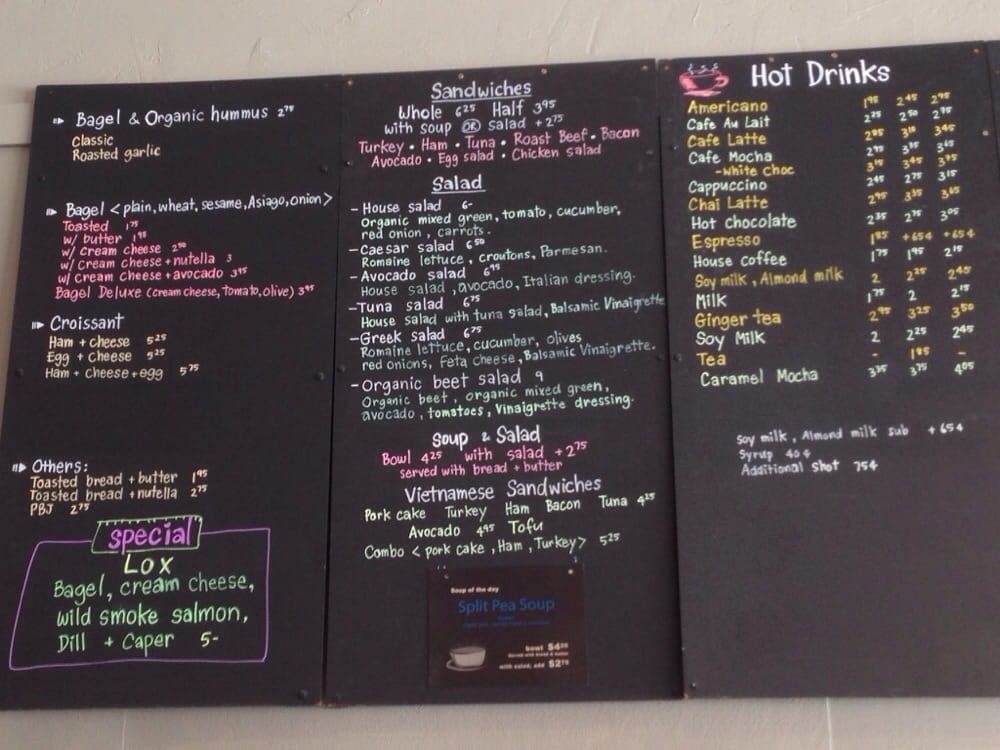 Bagel & Organic hummus 2.75
Classic
Roasted garlic
Bagel < plain, wheat, sesame, Asiago, onion >
Toasted 1.75
w/ butter 1.95
w/ cream cheese 2.50
w/ cream cheese + nutella 3
w/ cream cheese + avocado 3.95
Bagel Deluxe (cream cheese, tomato, olive) 3.95
Croissant
Ham + cheese 5.25
Egg + cheese 5.25
Ham + cheese + egg 5.75
Others:
Toasted bread + butter 1.95
Toasted bread + nutella 2.75
PBJ 2.75
special
Lox
Bagel, cream cheese,
wild smoke salmon,
Dill + Caper 5-
Sandwiches
Whole 6.25 Half 3.95
with soup OR salad + 2.75
Turkey • Ham • Tuna • Roast Beef • Bacon
Avocado • Egg salad • Chicken salad
Salad
- House salad 6-
Organic mixed green, tomato, cucumber,
red onion, carrots.
- Caesar salad 6.50
Romaine lettuce, croutons, Parmesan.
- Avocado salad 6.95
House salad, avocado, Italian dressing.
- Tuna salad 6.75
House salad with tuna salad, Balsamic Vinaigrette
- Greek salad 6.75
Romaine lettuce, cucumber, olives
red onions, Feta cheese, Balsamic Vinaigrette.
- Organic beet salad 9
Organic beet, organic mixed green,
avocado, tomatoes, Vinaigrette dressing.
Soup & Salad
Bowl 4.25 with salad + 2.75
served with bread + butter
Vietnamese Sandwiches
Pork cake Turkey Ham Bacon Tuna 4.25
Avocado 4.95 Tofu
Combo < pork cake, Ham, Turkey > 5.25
Soup of the day
Split Pea Soup
bowl $4.25
Served with bread & butter
with salad, add $2.75
Hot Drinks
Americano 1.95 2.45 2.95
Cafe Au Lait 2.25 2.50 2.75
Cafe Latte 2.85 3.10 3.45
Cafe Mocha 2.95 3.35 3.65
-White choc 3.15 3.45 3.75
Cappuccino 2.45 2.75 3.15
Chai Latte 2.95 3.35 3.65
Hot chocolate 2.35 2.75 3.05
Espresso 1.85 +65¢ +65¢
House coffee 1.75 1.95 2.15
Soy milk, Almond milk 2 2.25 2.45
Milk 1.75 2 2.15
Ginger tea 2.95 3.25 3.50
Soy Milk 2 2.25 2.45
Tea - 1.85 -
Caramel Mocha 3.35 3.75 4.05
Soy milk, Almond milk sub +65¢
Syrup 40¢
Additional shot 75¢